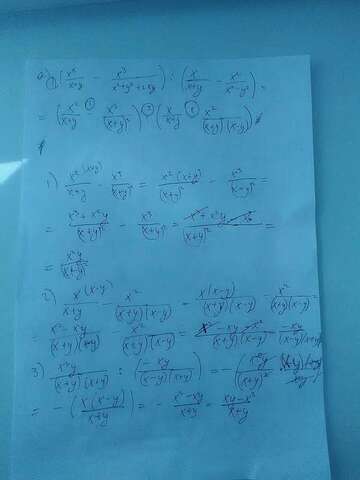 a) ( x²/(x+y) - x³/(x²+y²+2xy) ) : ( x/(x+y) - x²/(x²-y²) ) =
= ( x²/(x+y) - x³/(x+y)² ) : ( x/(x+y) - x²/((x+y)(x-y)) )
1) x² (x+y)/(x+y) - x³/(x+y)² = x²(x+y)/(x+y)² - x³/(x+y)² =
= (x³+x²y)/(x+y)² - x³/(x+y)² = (x³+x²y-x³)/(x+y)² =
= x²y/(x+y)²
2) x (x-y)/(x+y) - x²/((x+y)(x-y)) = x(x-y)/((x+y)(x-y)) - x²/((x+y)(x-y))
= (x²-xy)/((x+y)(x-y)) - x²/((x+y)(x-y)) = (x²-xy-x²)/((x+y)(x-y)) = -xy/((x-y)(x+y))
3) x²y/((x+y)(x+y)) : ( -xy/((x-y)(x+y)) ) = - ( x²y/(x+y)² · (x-y)(x+y)/xy )
= - ( x(x-y)/(x+y) ) = - (x²-xy)/(x+y) = (xy-x²)/(x+y)